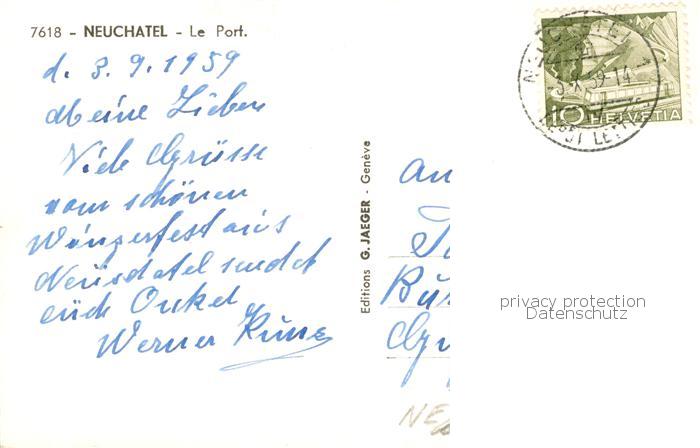 7618 - NEUCHATEL - Le Port.
d. 3.9.1959
Meine Lieben
Viele Grüsse
vom schönen
Winzerfest aus
Neuschatel sendet
euch Onkel
Werner
Editions G. JAEGER - Genève
An
Bur
NE
10 HELVETIA
privacy protection
Datenschutz